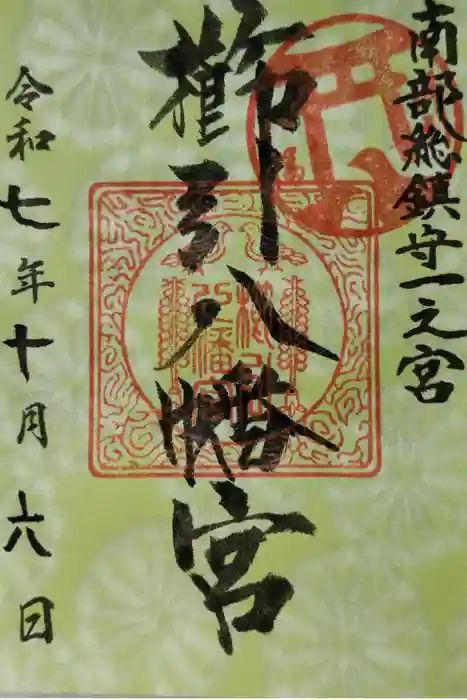 南部総鎮守一之宮
櫛引八幡宮
令和七年十月六日